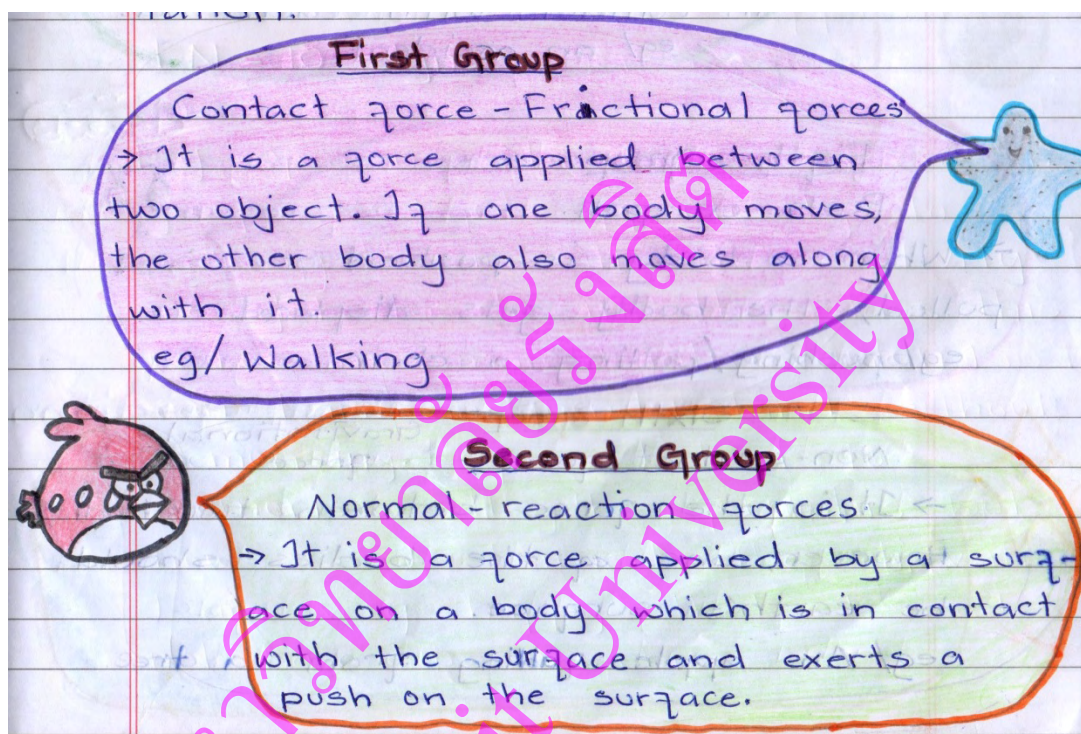 First Group
Contact force - Frictional forces
→ It is a force applied between
two object. If one body moves,
the other body also moves along
with it.
eg/ Walking
Second Group
Normal - reaction forces.
→ It is a force applied by a surf-
ace on a body which is in contact
with the surface and exerts a
push on the surface.
วิทยาลัยรังสิต
it University